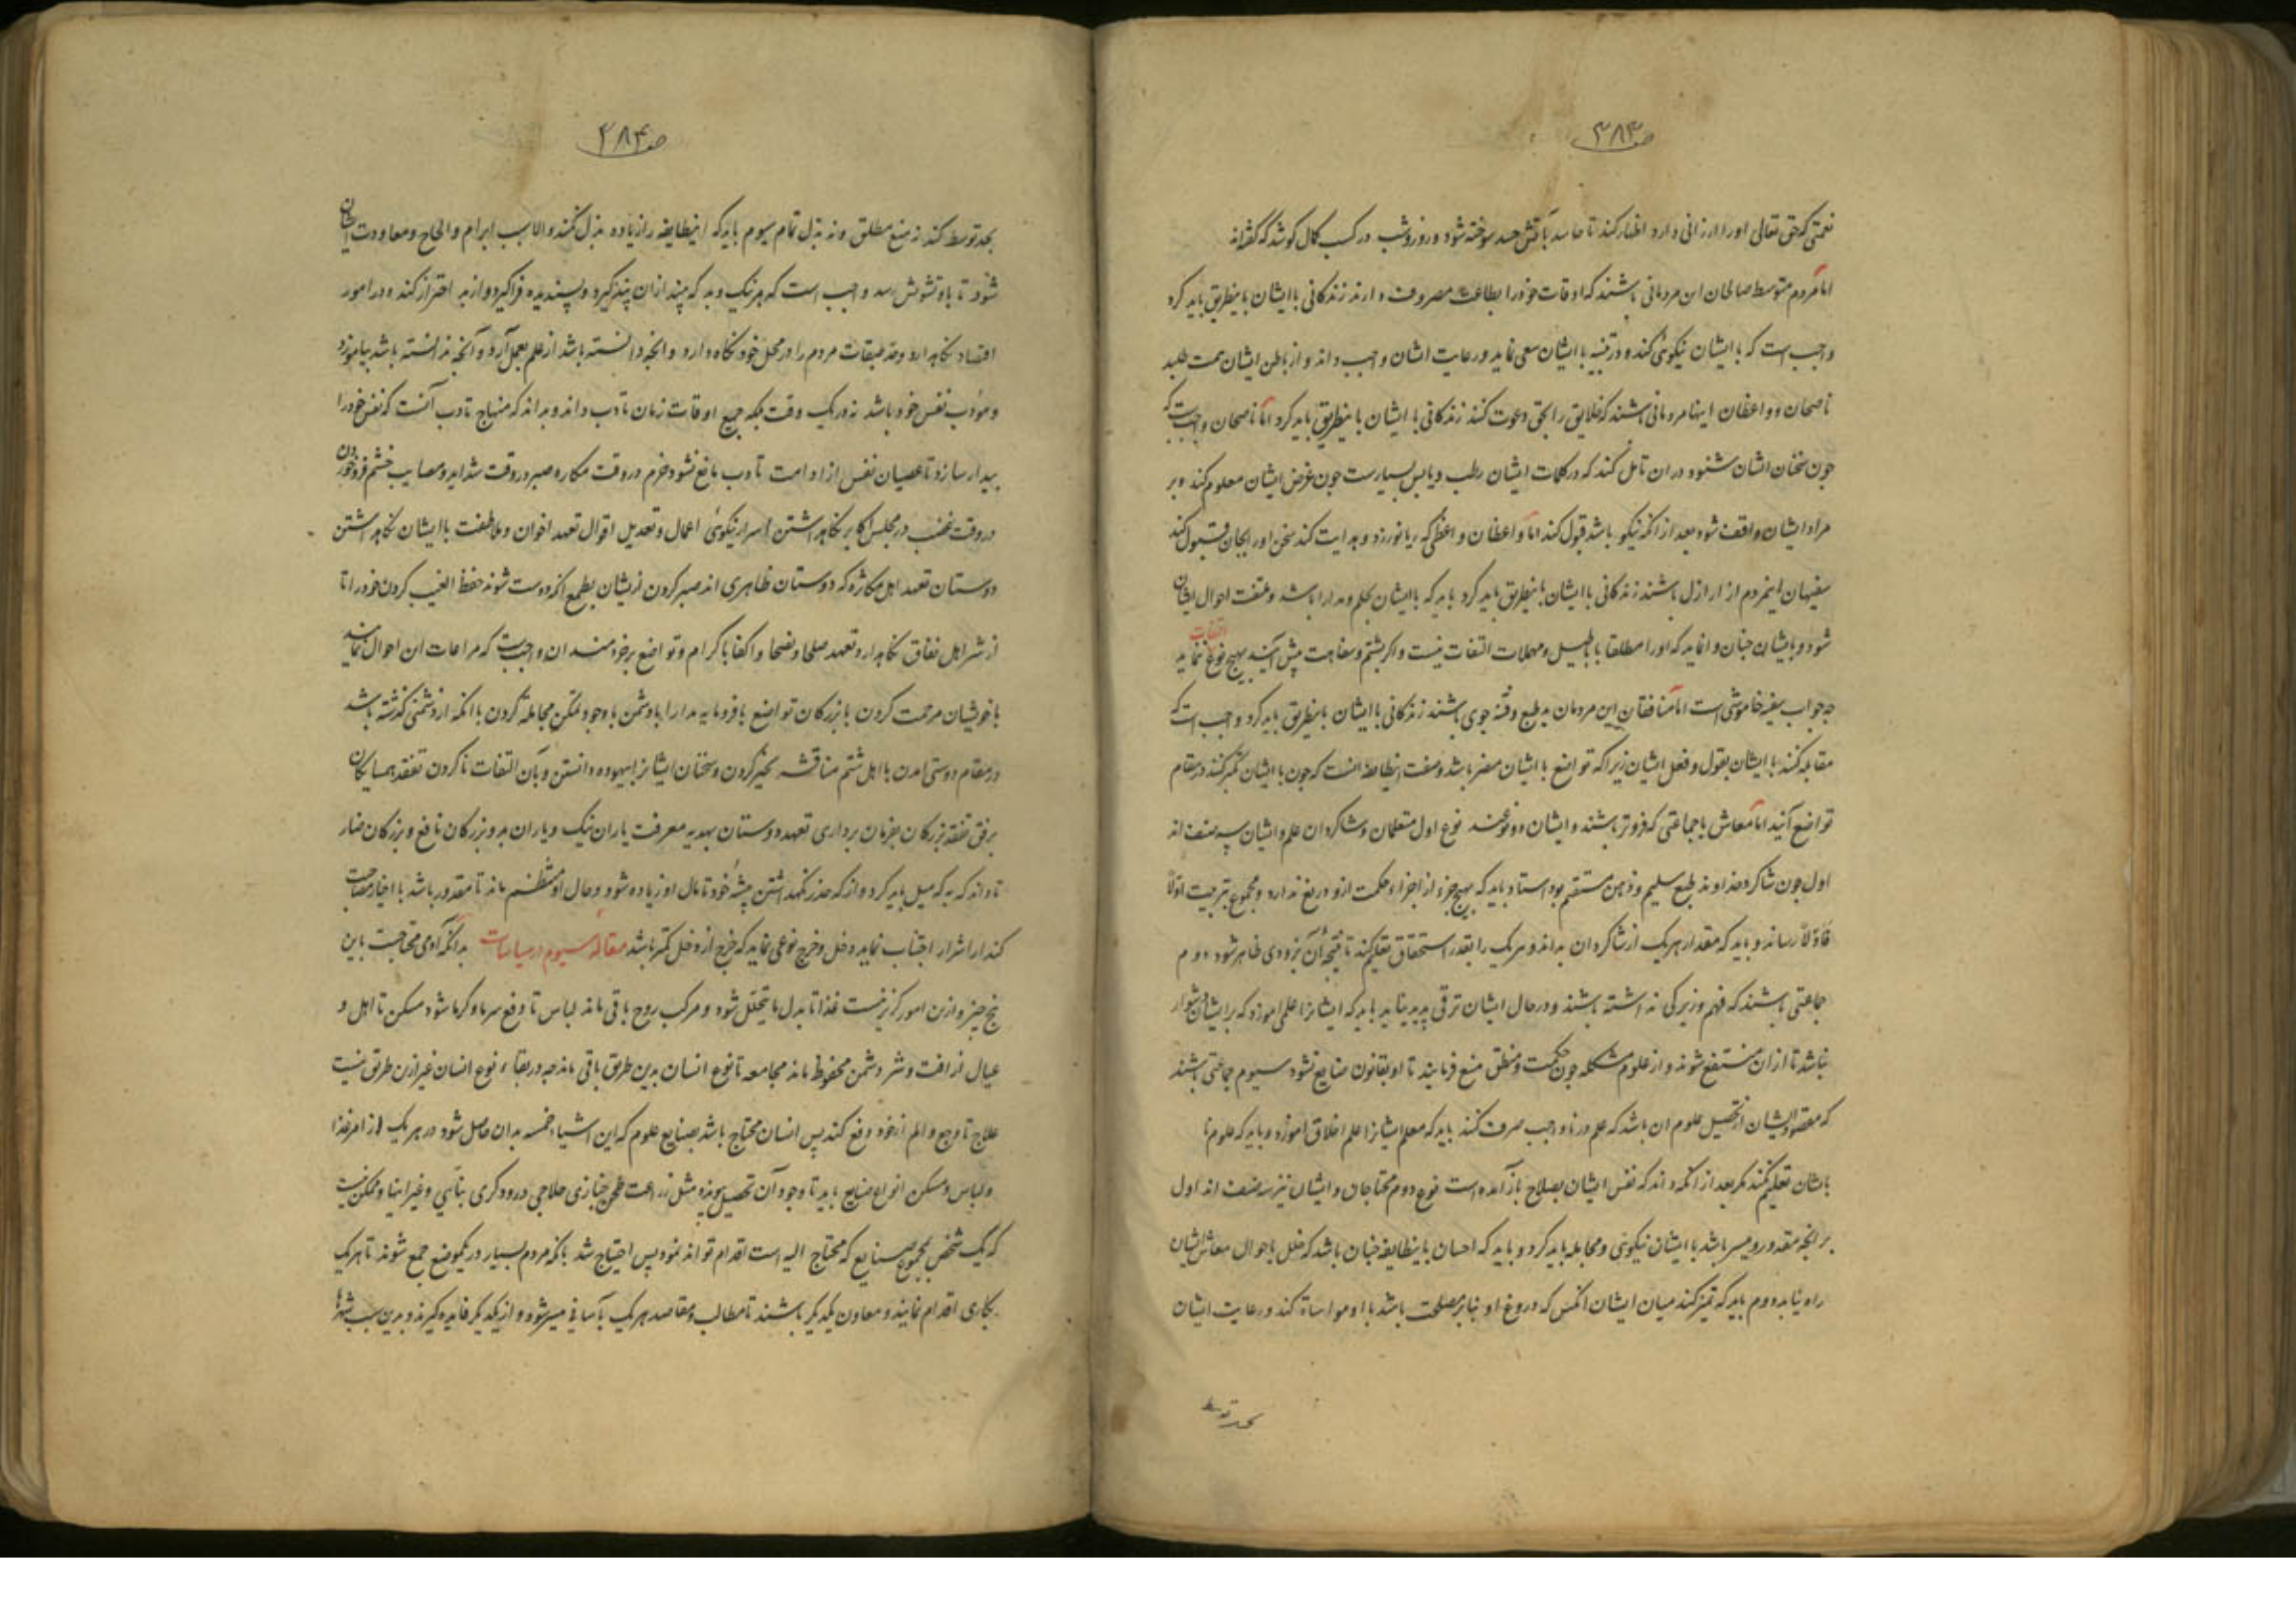 صفـ ۳۸۳
نعمتی که حق تعالی او را ارزانی دارد اظهار کند تا حاسد بآتش حسد سوخته شود و روز و شب در کسب کمال کوشد که گفته‌اند
اما مردم متوسط صالحان این مردمانی باشند که اوقات خود را بطاعت مصروف دارند زندکانی با ایشان باینطریق باید کرد
واجب است که با ایشان نیکوئی کند و در تشبه با ایشان سعی نماید و رعایت ایشان واجب داند و از باطن ایشان همت طلبد
ناصحان و واعظان اینها مردمانی باشند که خلایق را بحق دعوت کنند زندکانی با ایشان باینطریق باید کرد اما ناصحان واجبست که
چون سخنان ایشان شنود در ان تامل کند که در کلمات ایشان رطب و یابس بسیارست چون غرض ایشان معلوم کند و بر
مراد ایشان واقف شود بعد از انکه نیکو باشد قبول کند اما واعظان واعظی که ریا نورزد و هدایت کند سخن او را بجان قبول کند
سفیهان اینمردم از اراذل باشند زندکانی با ایشان باینطریق باید کرد باید که با ایشان بحلم و مدارا باشد و احوال ایشان
شود و با ایشان چنان وانماید که او را مطلقا باباطیل و مهملات التفات نیست و اکر بشتم و سفاهت پیش آیند بهیچ نوع التفات ننماید
چه جواب سفیه خاموشی است اما منافقان این مردمان بد طبع و فتنه جوی باشند زندکانی با ایشان باینطریق باید کرد واجب است که
مقابله کنند با ایشان بقول و فعل ایشان زیرا که تواضع با ایشان مضر باشد و صفت اینطایفه انست که چون با ایشان تکبر کنند در مقام
تواضع آیند اما معاش با جماعتی که فروتر باشند و ایشان دو نوعند نوع اول متعلمان و شاکردان علم و ایشان سه صنف اند
اول چون شاکرد خداوند طبع سلیم و ذهن مستقیم بود استاد باید که هیچ جزء از اجزاء حکمت ازو دریغ ندارد و مجموع بتربیت اولاً
فاولاً رساند و باید که مقدار هر یک از شاکردان بداند و هر یک را بقدر استحقاق تعلیم کند تا نتیجه آن بزودی ظاهر شود دوم
جماعتی باشند که فهم و زیرکی نداشته باشند و در حال ایشان ترقی پدید نیاید باید که ایشانرا علمی اموزد که بر ایشان دشوار
نباشد تا از ان منتفع شوند و از علوم مشکله چون حکمت و منطق منع فرمایند تا اوبقانون ضایع نشود سیوم جماعتی باشند
که مقصود ایشان از تحصیل علوم ان باشد که علم در ناواجب صرف کنند باید که معلم ایشانرا علم اخلاق اموزد و باید که علوم تا
بایشان تعلیم نکند مکر بعد از انکه داند که نفس ایشان بصلاح باز آمده است نوع دوم محتاجان و ایشان نیز سه صنف اند اول
بر انچه مقدور و میسر باشد با ایشان نیکوئی و مجامله باید کرد و باید که احسان باینطایفه چنان باشد که خلل باحوال معاش ایشان
راه نیابد دوم باید که تمیز کند میان ایشان انکس که دروغ او بنابر مصلحت باشد با او مواساة کند و رعایت ایشان
بحد توسط
صفـ ۳۸۴
بحد توسط کند نه منع مطلق و نه بذل تمام سیوم باید که اینطایفه را زیاده بذل نکند والا سبب ابرام و الحاح و معاودت ایشان
شود تا باو تشویش رسد واجب است که هر نیک و بد که بیند از ان پند کیرد و پسندیده فراکیرد و از بد احتراز کند و در امور
اقتصاد نکاهدارد و حد طبقات مردم را در محل خود نکاه دارد و انچه دانسته باشد از علم بعمل آرد و آنچه ندانسته باشد بیاموزد
و مؤدب نفس خود باشد نه در یک وقت بلکه جمیع اوقات زمان تادب داند و بداند که منهاج تادب آنست که نفس خود را
بیدار سازد تا عصیان نفس از ادامت تادب مانع نشود و حزم در وقت مکاره صبر در وقت شداید و مصایب خشم فروخوردن
در وقت غضب در مجلس اکابر نکاهداشتن اسرار نیکوئی اعمال و تعدیل اقوال تعهد اخوان و ملاطفت با ایشان نکاهداشتن
دوستان تعهد اهل مکاثره که دوستان ظاهری اند صبر کردن از ایشان بطمع انکه دوست شوند حفظ الغیب کردن خود را تا
از شر اهل نفاق نکاهدارد و تعهد صلحا و نصحا و اکفا باکرام و تواضع بر خردمندان واجبست که مراعات این احوال نمایند
با خویشان مرحمت کردن با بزرکان تواضع با فرومایه مدارا با دشمن با وجود تمکن مجامله کردن با انکه از دشمنی کذشته باشد
در مقام دوستی امدن با اهل شتم مناقشه بخیر کردن و سخنان ایشانرا بیهوده دانستن و بآن التفات ناکردن تفقد همسایکان
برفق تفقد بزرکان بفرمان برداری تعهد دوستان بهدیه معرفت یاران نیک و یاران بد و بزرکان نافع و بزرکان ضار
تا داند که به که میل باید کرد و از که حذر نکهداشتن پیشهٔ خود تا مال او زیاده شود و حال او منتظم ماند تا مقدور باشد با اخیار مصاحبت
کند از اشرار اجتناب نماید دخل و خرج نوعی نماید که خرج از دخل کمتر باشد مقالهٔ سیوم در سیاسات بدانکه آدمی محتاجست باین
پنج چیز و ازین امور کزیر نیست غذا تا بدل ما یتحلل شود و مرکب روح باقی ماند لباس تا دفع سرما و کرما شود مسکن تا اهل و
عیال از افت و شر دشمن محفوظ ماند مجامعه تا نوع انسان بدین طریق باقی ماند چه در بقاء نوع انسان غیر ازین طریق نیست
علاج تا وجع و الم از خود دفع کند پس انسان محتاج باشد بصنایع علوم که این اشیاء خمسه بدان حاصل شود در هر یک از امر غذا
و لباس و مسکن انواع صنایع باید تا وجود آن تحصیل پذیرد مثل زراعت طحن خبازی حلاجی درودکری بنایی و غیر اینها و ممکن نیست
که یک شخص بمجموع صنایع که محتاج الیه است اقدام تواند نمود پس احتیاج شد بانکه مردم بسیار در یکموضع جمع شوند تا هر یک
بکاری اقدام نمایند و معاون یکدیکر باشند تا مطالب و مقاصد هر یک بآسانی میسر شود و از یکدیکر فایده کیرند و بدین سبب شهرها